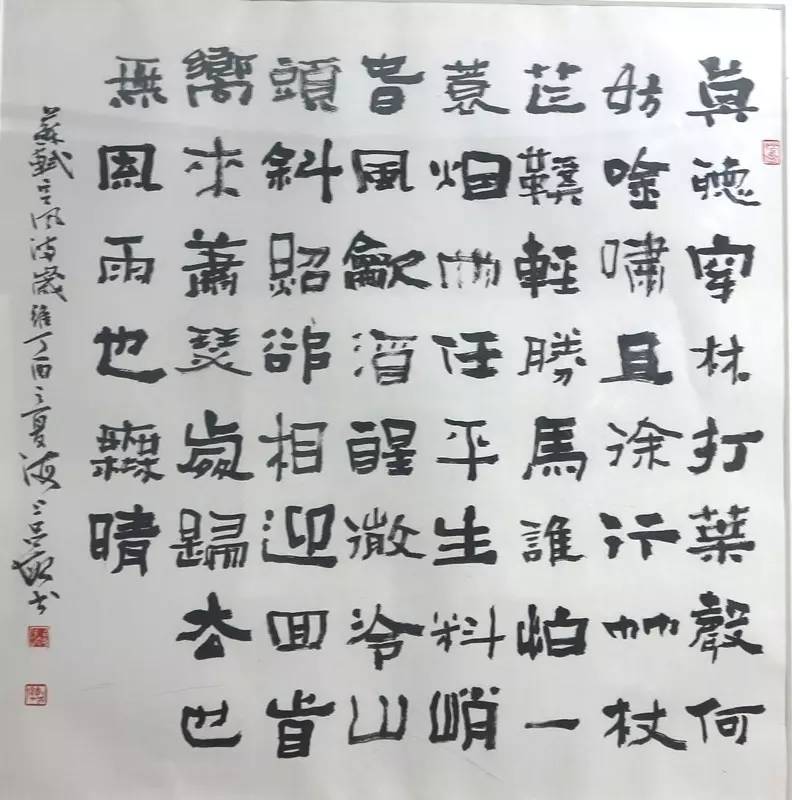 莫聽穿林打葉聲何
妨唫嘯且徐行竹杖
芒鞵輕勝馬誰怕一
蓑烟雨任平生料峭
旾風龡酒醒微冷山
頭斜照卻相迎回首
嚮來蕭瑟處歸去也
無風雨也無晴
蘇軾定風波歲維丁酉之夏海上書